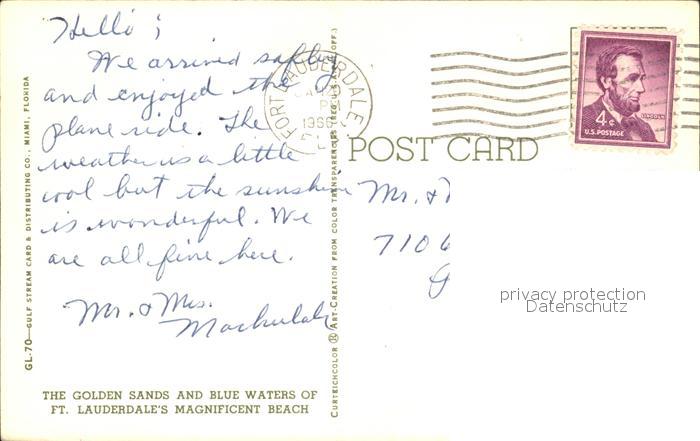 Hello ;
We arrived safely
and enjoyed the
plane ride. The
weather is a little
cool but the sunshine
is wonderful. We
are all fine here.
Mr. & Mrs.
THE GOLDEN SANDS AND BLUE WATERS OF
FT. LAUDERDALE'S MAGNIFICENT BEACH
GL-70—GULF STREAM CARD & DISTRIBUTING CO., MIAMI, FLORIDA
CURTEICHCOLOR ® ART-CREATION FROM COLOR TRANSPARENCIES (REG. U.S.A. PAT. OFF.)
FORT LAUDERDALE,
POST CARD
LINCOLN
4¢
U.S. POSTAGE
Mr. &
7106
privacy protection
Datenschutz